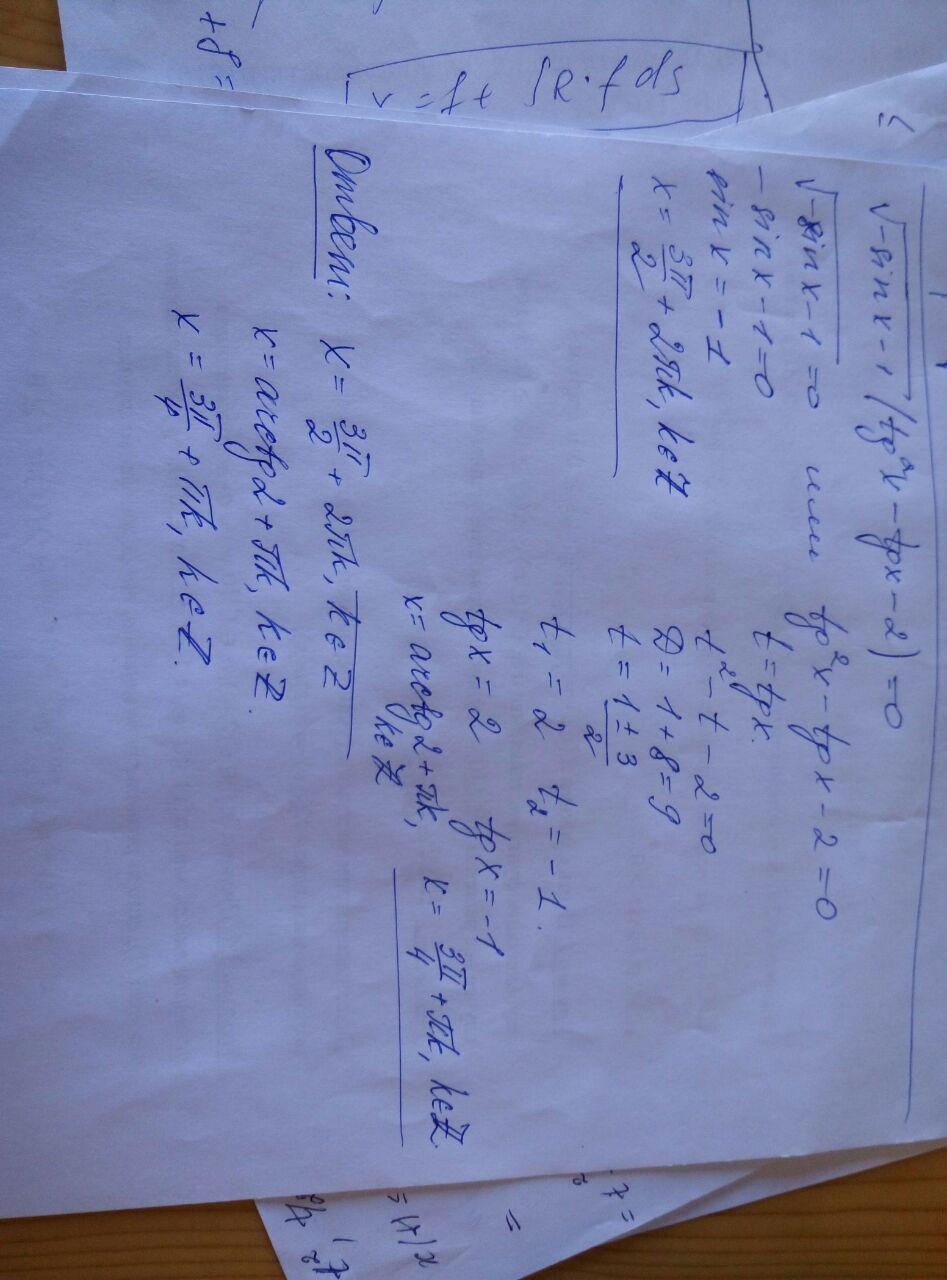 √-sinx-1 (tg²x - tgx - 2) = 0
√-sinx-1 = 0 или tg²x - tgx - 2 = 0
-sinx-1=0 t = tgx.
sinx = -1 t² - t - 2 = 0
x = 3π/2 + 2πk, k∈Z D = 1 + 8 = 9
t = 1 ± 3 / 2
t₁ = 2 t₂ = -1.
tgx = 2 tgx = -1
x = arctg2 + πk, k∈Z x = 3π/4 + πk, k∈Z.
Ответ: x = 3π/2 + 2πk, k∈Z
x = arctg2 + πk, k∈Z.
x = 3π/4 + πk, k∈Z.